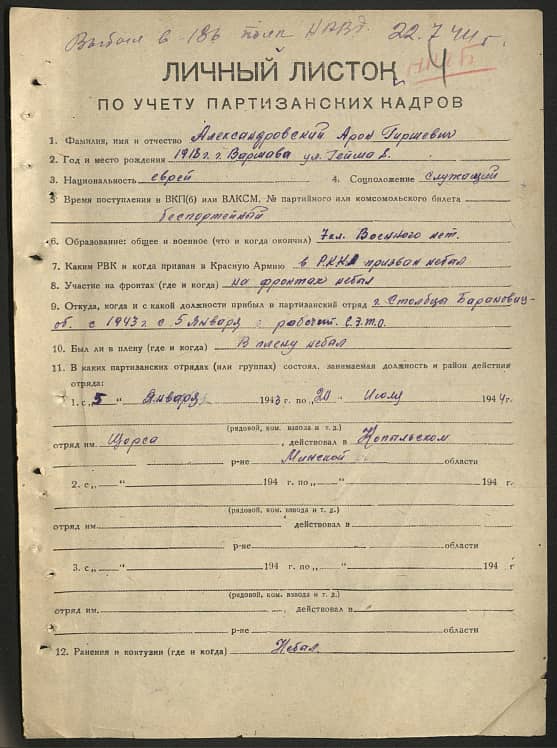 Выбыл в 186 полк НКВД. 22.7.44 г.
ЛИЧНЫЙ ЛИСТОК
ПО УЧЕТУ ПАРТИЗАНСКИХ КАДРОВ
1. Фамилия, имя и отчество Александровский Арон Гиршевич
2. Год и место рождения 1918 г. г. Варшава ул.
3. Национальность еврей 4. Соцположение служащий
5 Время поступления в ВКП(б) или ВЛКСМ, № партийного или комсомольского билета
беспортейный
6. Образование: общее и военное (что и когда окончил) 7 кл. Военного нет.
7. Каким РВК и когда призван в Красную Армию в РККА призван небыл
8. Участие на фронтах (где и когда) на фронтах небыл
9. Откуда, когда и с какой должности прибыл в партизанский отряд г. Столбцы Баранович-
об. с 1943 г. с 5 Января рабочий
10. Был ли в плену (где и когда) В плену небыл
11. В каких партизанских отрядах (или группах) состоял, занимаемая должность и район действия
отряда:
1. с „5 “ Января 1943 г. по „20 “ Июля 1944 г.
(рядовой, ком. взвода и т. д.)
отряд им. Щорса , действовал в Копыльском
р-не Минской области
2. с „ “ 194 г. по „ “ 194 г.
(рядовой, ком. взвода и т. д.)
отряд им. действовал в
р-не области
3. с „ “ 194 г. по „ “ 194 г
(рядовой, ком. взвода и т. д.)
отряд им. , действовал в
р-не области
12. Ранения и контузии (где и когда) Небыл.